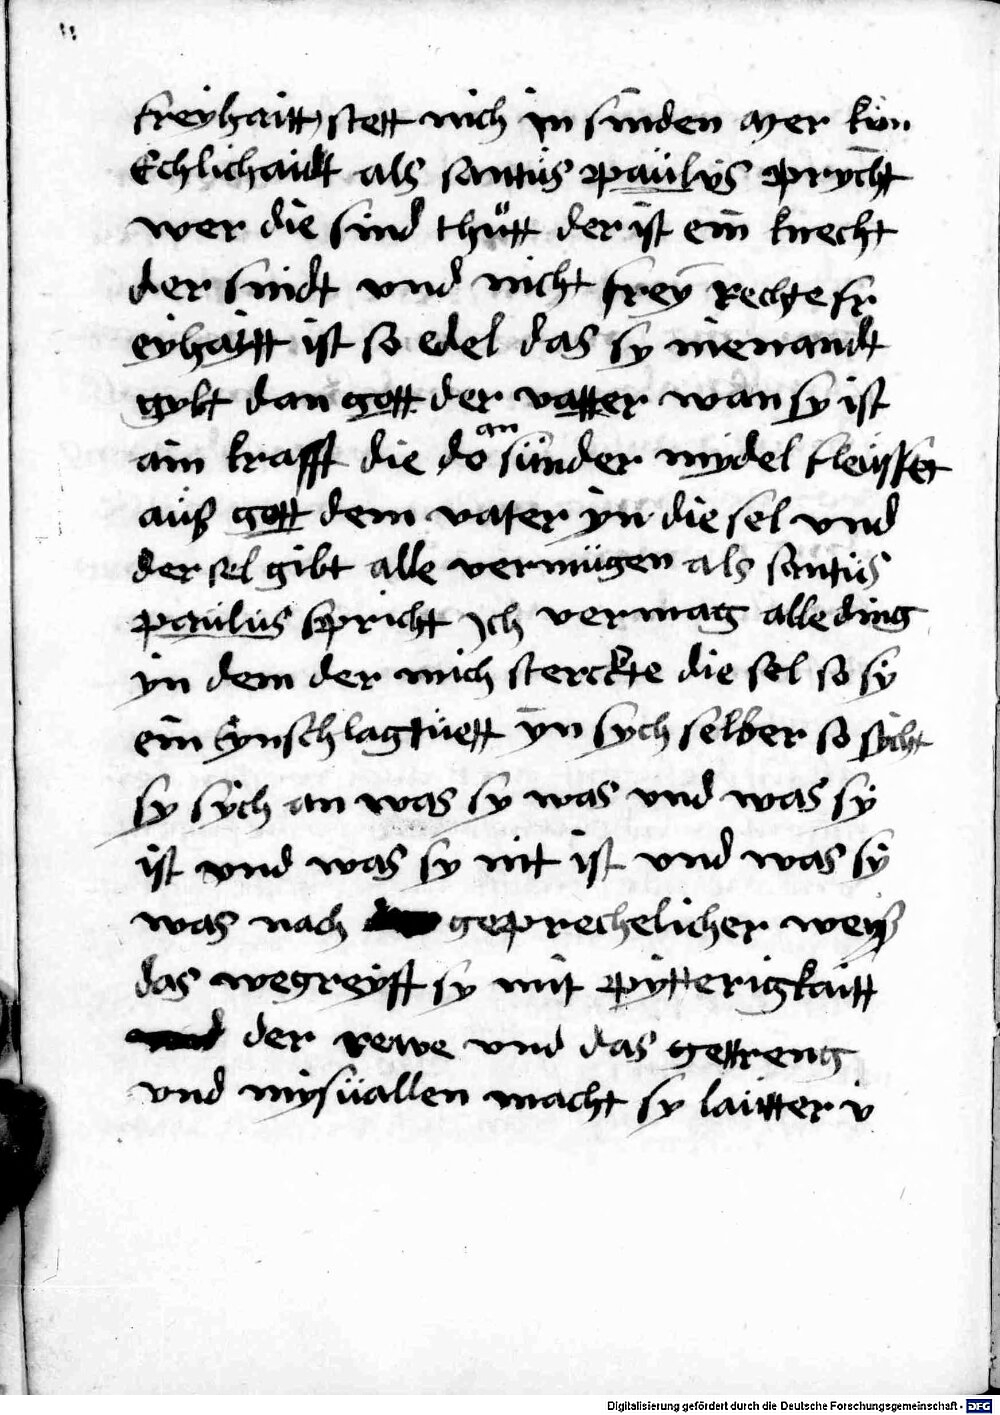 freyhaitt stett nich in sinden mer kün
Echlichaidt als santus paulus sprycht
wer die sind thütt der ist ein knecht
der sindt vnd nicht frey Rechte fr
eyhaitt ist so edel das sy niemandt
gybt dan gott der vatter wan sy ist
ain krafft die do an sünder mydel fleüsset
auß gott dem vater yn die sel vnd
der sel gibt alle vermügen als santus
paulus spricht Ich vermag alle ding
yn dem der mich sterckte die sel so sy
ein Eynschlag tüett yn sych selber so sycht
sy sych an was sy was vnd was sy
ist vnd was sy nit ist vnd was sy
was nach geprechelicher weyß
das wegreyft sy mit pytterigkaitt
der rewe vnd das getreng
vnd mysüallen macht sy lautter v
Digitalisierung gefördert durch die Deutsche Forschungsgemeinschaft - DFG